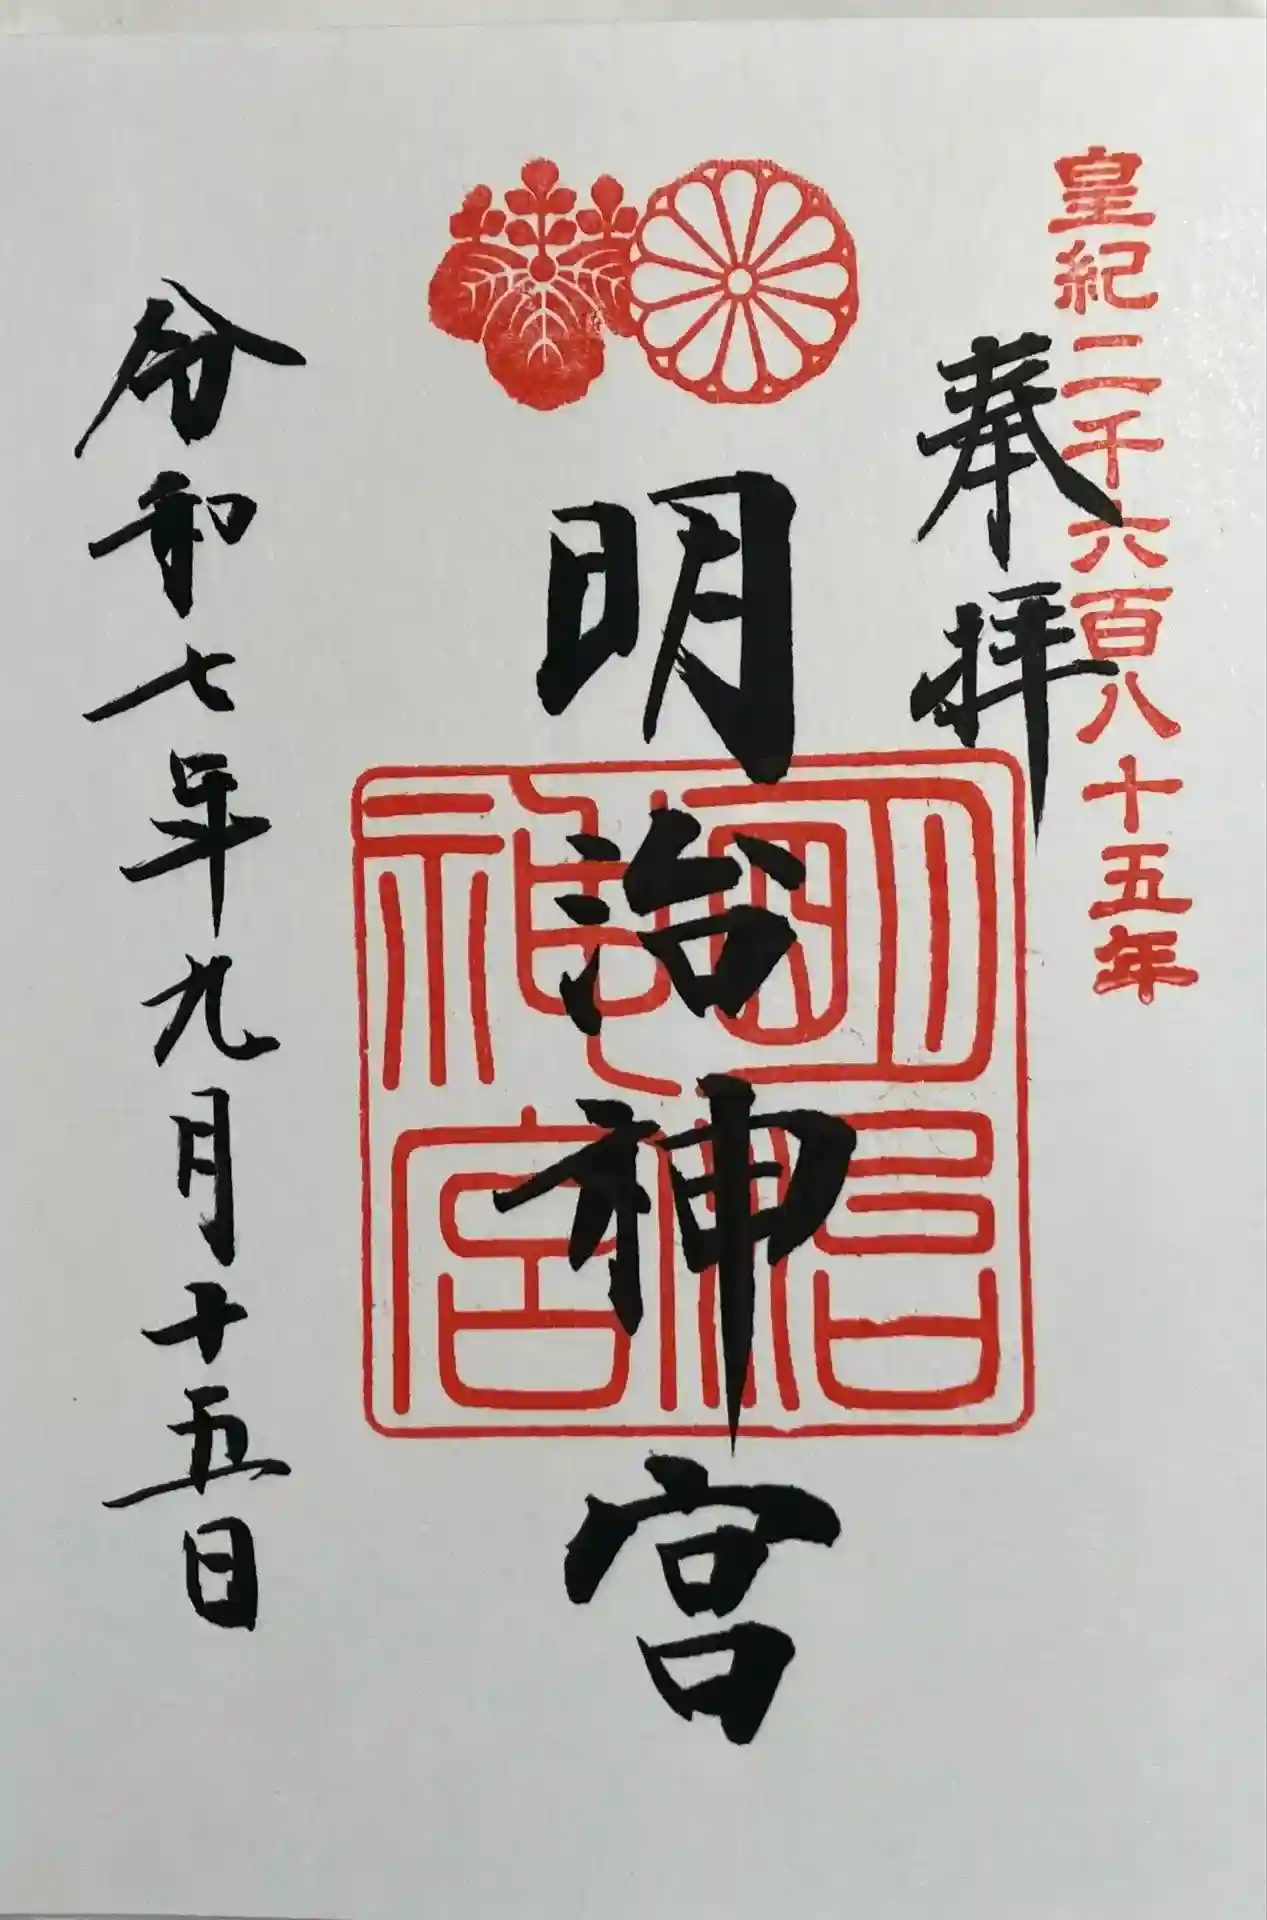 皇紀二千六百八十五年
奉拝
明治神宮
明治神宮
令和七年九月十五日